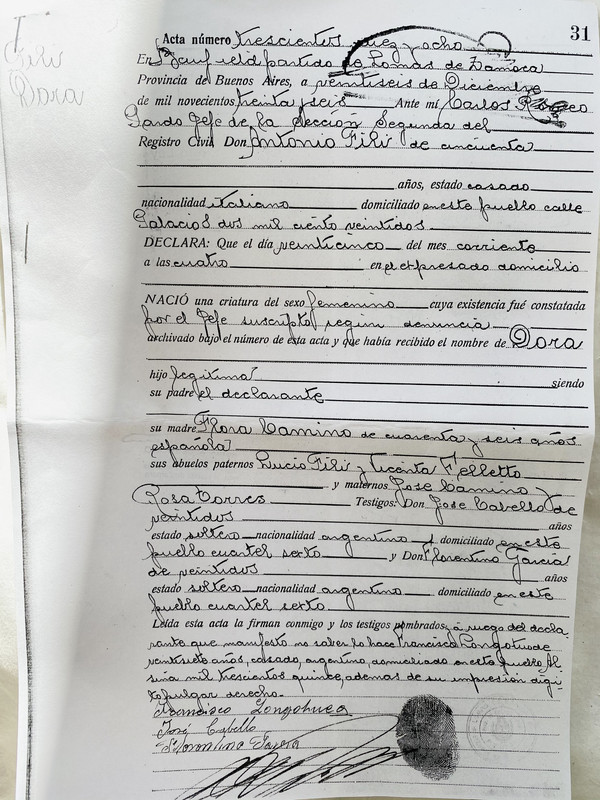 31
Fili
Dora
Acta número trescientos diez y ocho
En Banfield partido de Lomas de Zamora
Provincia de Buenos Aires, a veintiseis de Diciembre
de mil novecientos treinta y seis Ante mí Carlos
Jefe de la Sección Segunda del
Registro Civil, Don Antonio Fili de cincuenta
años, estado casado
nacionalidad italiano domiciliado en este pueblo calle
Palacios dos mil ciento veintidos
DECLARA: Que el día veinticinco del mes corriente
a las cuatro en el expresado domicilio
NACIÓ una criatura del sexo femenino cuya existencia fué constatada
por el Jefe suscripto según denuncia
archivado bajo el número de esta acta y que había recibido el nombre de Dora
hijo legitima siendo
su padre el declarante
su madre Flora Camino de cuarenta y seis años
española
sus abuelos paternos Lucio Fili y Vicenta Felletto
y maternos Jose Camino y
Rosa Torres Testigos: Don Jose Cabello de
veintidos años
estado soltero nacionalidad argentino domiciliado en este
pueblo cuartel sexto y Don Florentino Garcia
de veintidos años
estado soltero nacionalidad argentino domiciliado en este
pueblo cuartel sexto
Leída esta acta la firman conmigo y los testigos nombrados, a ruego del decla-
rante que manifestó no saber lo hace Francisco de
veintisiete años, casado, argentino, domiciliado en este pueblo, Al
sina mil trescientos quince, ademas de su impresión digi-
to pulgar derecho.-
Francisco
José Cabello